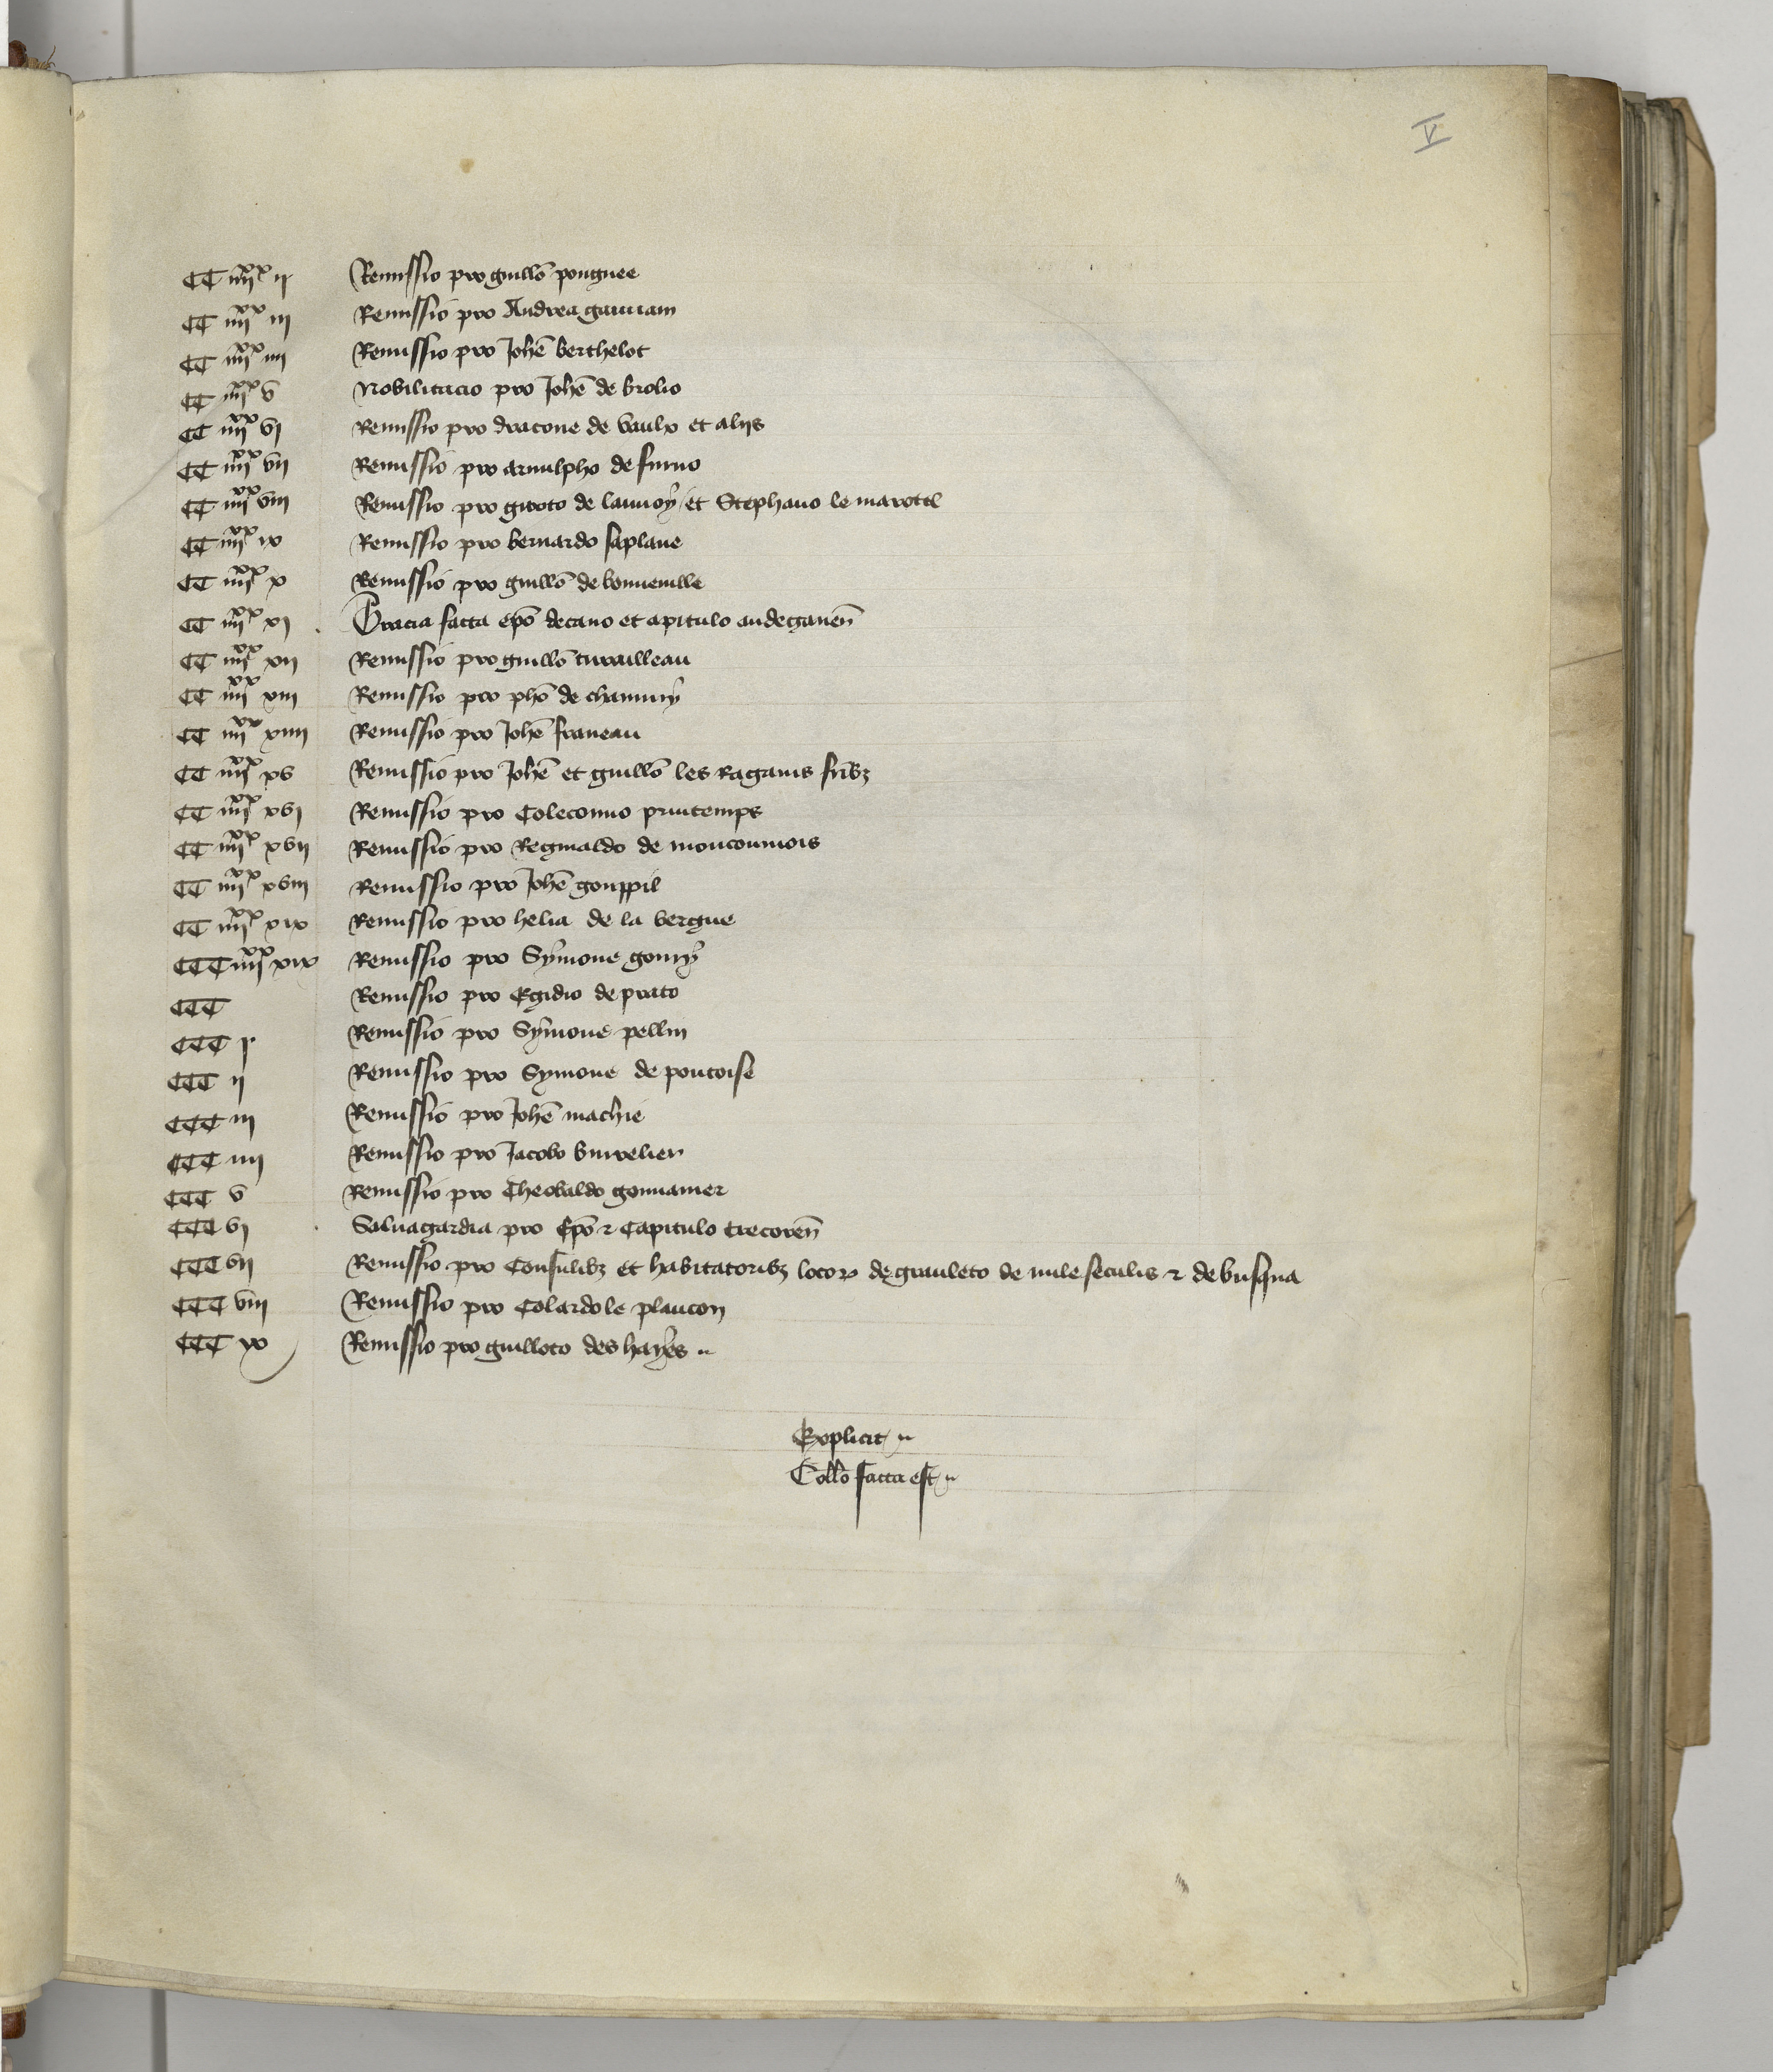 V
CC IIIIxx II Remissio pro guillō pouguee
CC IIIIxx III Remissio pro Andrea gauuain
CC IIIIxx IIII Remissio pro Johē berthelot
CC IIIIxx V Nobilitacio pro Johē de brolio
CC IIIIxx VI Remissio pro dracone de vaulx et aliis
CC IIIIxx VII Remissio pro arnulpho de furno
CC IIIIxx VIII Remissio pro giroto de launoy et Stephano le marottel
CC IIIIxx IX Remissio pro bernardo saplane
CC IIIIxx X Remissio pro guillō de bonneuille
CC IIIIxx XI Gracia facta ep̄o decano et capitulo andegaueñ
CC IIIIxx XII Remissio pro guillō turailleau
CC IIIIxx XIII Remissio pro phō de chauury
CC IIIIxx XIIII Remissio pro Johē franeau
CC IIIIxx XV Remissio pro Johē et guillō les Raganis fr̄ibꝫ
CC IIIIxx XVI Remissio pro Coleconno printemps
CC IIIIxx XVII Remissio pro Reginaldo de moncounois
CC IIIIxx XVIII Remissio pro Johē gouppil
CC IIIIxx XIX Remissio pro helia de la vergne
CCC IIIIxx XIX Remissio pro Symone goury
CCC Remissio pro Egidio de prato
CCC I Remissio pro Symone pellin
CCC II Remissio pro Symone de pontoise
CCC III Remissio pro Johē machie
CCC IIII Remissio pro Jacobo buirelier
CCC V Remissio pro Theobaldo gonnamer
CCC VI Saluagardia pro Ep̄o ⁊ Capitulo trecoreñ
CCC VII Remissio pro Consulibꝫ et habitatoribꝫ locoꝝ de grauleto de mile seculis ⁊ de busqua
CCC VIII Remissio pro Colardo le plancon
CCC IX Remissio pro guilloto des hayes
Explicit
Coll̄o facta est